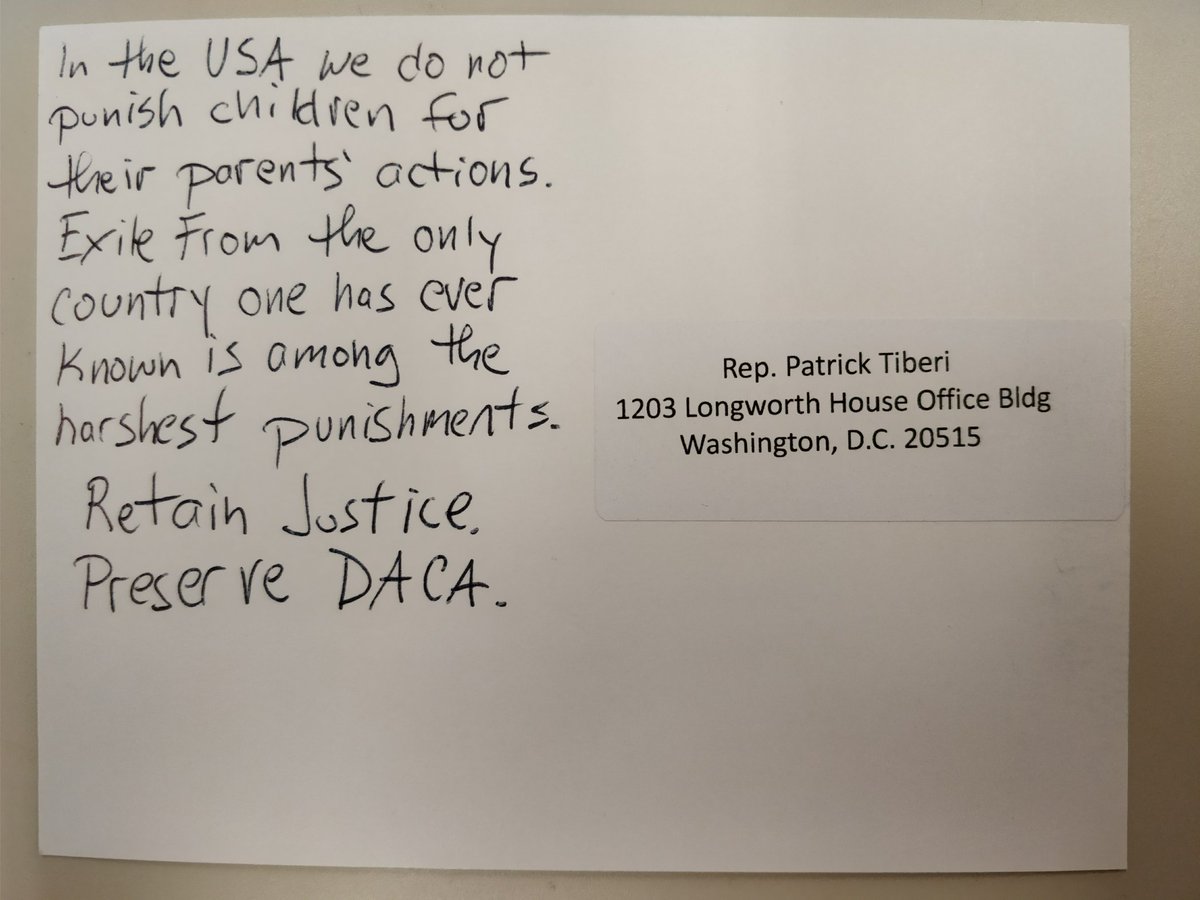 In the USA we do not
punish children for
their parents' actions.
Exile From the only
country one has ever
known is among the
harshest punishments.
Retain Justice.
Preserve DACA.
Rep. Patrick Tiberi
1203 Longworth House Office Bldg
Washington, D.C. 20515